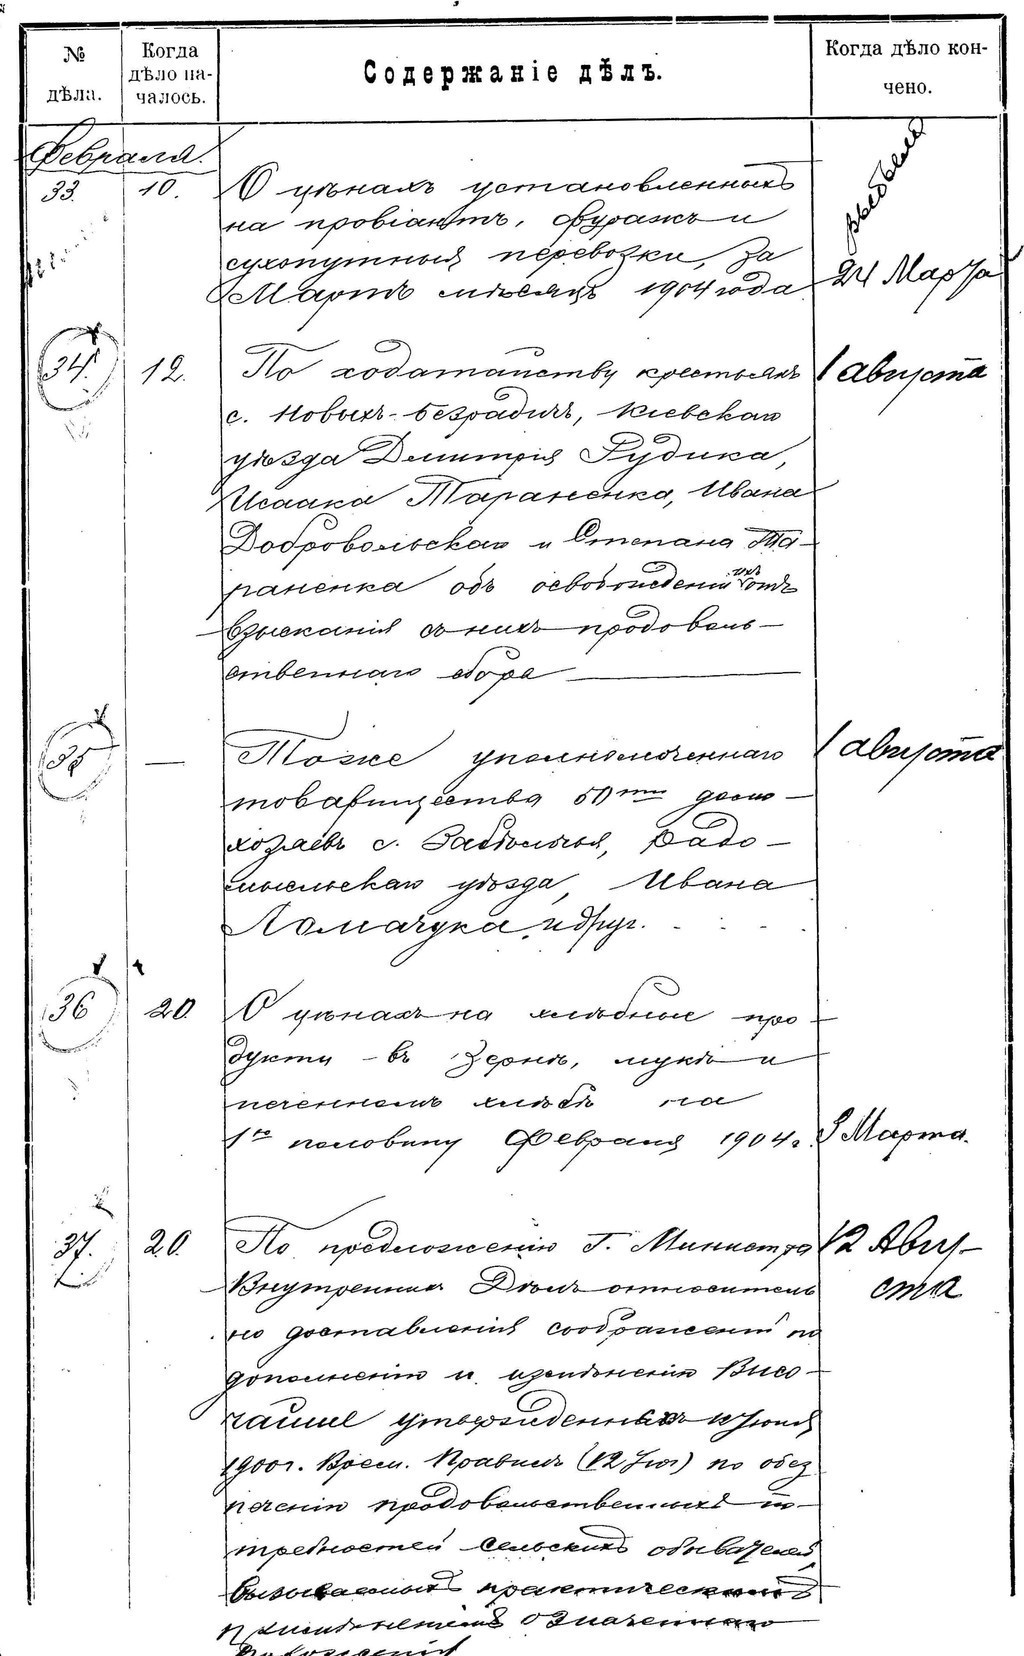 № дѣла.
Когда дѣло на-
чалось.
Содержаніе дѣлъ.
Когда дѣло кон-
чено.
Февраля.
33. 10. О цѣнахъ установленныхъ
на провіантъ, фуражъ и
сухопутныя перевозки, за
Мартъ мѣсяцъ 1904 года 24 Марта
34. 12. По ходатайству крестьянъ 1 августа
с. Новыхъ-Безрадичъ, Кіевскаго
уѣзда Димитрія Рудика,
Исаака Тараненка, Ивана
Добровольскаго и Степана Та-
раненка объ освобожденіи ихъ отъ
взысканія съ нихъ продоволь-
ственнаго сбора
35 — Тоже уполномоченнаго 1 августа
товарищества 50ти домо-
хозяевъ с. Радо-
мысльскаго уѣзда, Ивана
Ломачука и друг.
36 20. О цѣнахъ на хлѣбные про-
дукты въ зернѣ, мукѣ и
печенномъ хлѣбѣ на
1ю половину Февраля 1904 г. Марта.
37. 20. По предложенію Г. Министра 12 Авгу-
Внутреннихъ Дѣлъ относитель ста
но доставленія соображеній по
дополненію и измѣненію Высо-
чайше утвержденныхъ 12 Іюня
1900 г. Врем. Правилъ (12 Іюн) по обез
печенію продовольственныхъ по-
требностей сельскихъ обывателей,
вызываемыхъ практическимъ
примѣненіемъ означеннаго